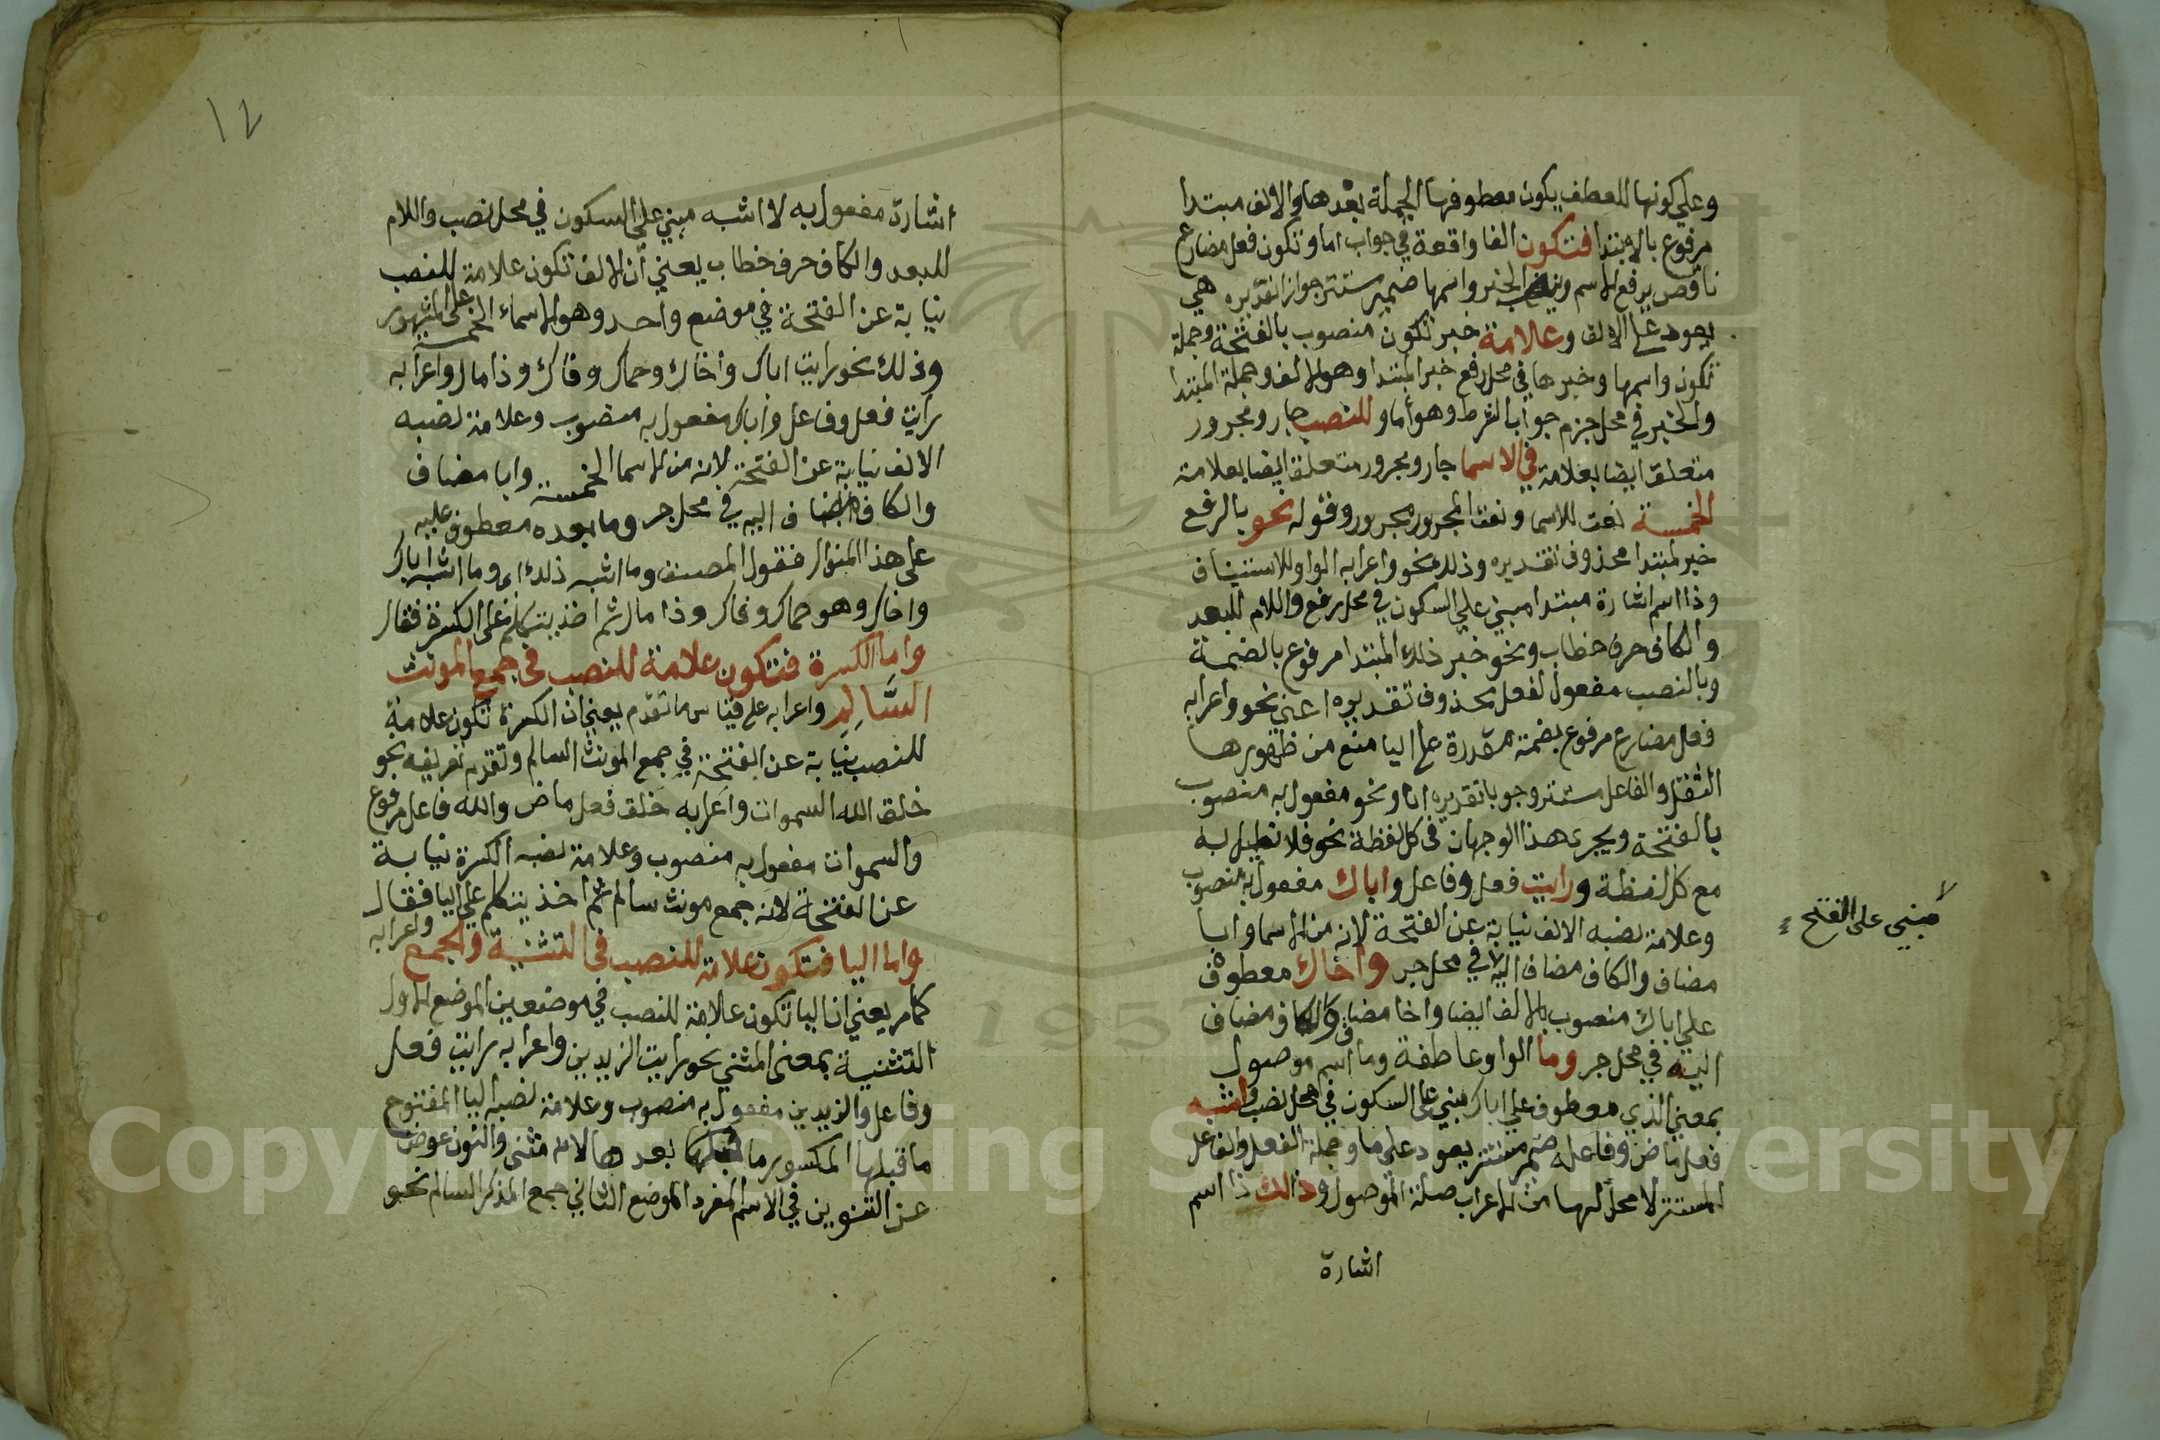 وعلي كونها للعطف يكون معطوفها الجملة بعدها والالف مبتدا
مرفوع بالابتدا فتكون الفا واقعة في جواب اما وتكون فعل مضارع
ناقص يرفع الاسم وينصب الخبر واسمها ضمير مستتر جوازا تقديره هي
يعود على الالف وعلامة خبر تكون منصوب بالفتحة وجملة
تكون واسمها وخبرها في محل رفع خبر المبتدا وهو الالف وجملة المبتدا
والخبر في محل جزم جوابا لشرط وهو أما وللنصب جار ومجرور
متعلق ايضا بعلامة في الاسما جار ومجرور متعلق ايضا بعلامة
الخمسة نعت للاسما ونعت المجرور مجرور وقوله نحو بالرفع
خبر لمبتدا محذوف تقديره وذلك نحو واعرابه الواو للاستيناف
وذا اسم اشارة مبتدا مبني علي السكون في محل رفع واللام للبعد
والكاف حرف خطاب ونحو خبر ذلك المبتدا مرفوع بالضمة
وبالنصب مفعول لفعل محذوف تقديره اعني نحو واعرابه
فعل مضارع مرفوع بضمة مقدرة على اليا منع من ظهورها
الثقل والفاعل مستتر وجوبا تقديره انا ونحو مفعول به منصوب
بالفتحة ويجري هذا الوجهان في كل لفظة نحو فلا نطيل به
مع كل لفظة ورايت فعل وفاعل واباك مفعول به منصوب
وعلامة نصبه الالف نيابة عن الفتحة لانه من الاسما وابا
مضاف والكاف مضاف اليه في محل جر واخاك معطوف
علي اباك منصوب بالالف ايضا واخا مضاف والكاف مضاف
اليه في محل جر وما الواو عاطفة وما اسم موصول
بمعني الذي معطوف علي اباك مبني على السكون في محل نصب واشبه
فعل ماض وفاعله ضمير مستتر يعود على ما وجملة الفعل والفاعل
المستتر لا محل لها من الاعراب صلة الموصول وذلك ذا اسم
اشارة
مبني على الفتح
١٢
اشارة مفعول به لا اشبه مبني على السكون في محل نصب واللام
للبعد والكاف حرف خطاب يعني أن الالف تكون علامة للنصب
نيابة عن الفتحة في موضع واحد وهو الاسماء الخمسة على المشهور
وذلك نحو رايت اباك واخاك وحماك وفاك وذا مال واعرابه
رايت فعل وفاعل واباك مفعول به منصوب وعلامة نصبه
الالف نيابة عن الفتحة لانه من الاسما الخمسة وابا مضاف
والكاف مضاف اليه في محل جر وما بعده معطوف عليه
على هذا المنوال فقول المصنف وما اشبه ذلك اي وما اشبه اباك
واخاك وهو حماك وفاك وذا مال ثم اخذ يتكلم على الكسرة فقال
واما الكسرة فتكون علامة للنصب في جمع المونث
السَّالِمِ واعرابه على قياس ما تقدم يعني ان الكسرة تكون علامة
للنصب نيابة عن الفتحة في جمع المونث السالم وتقدم تعريفه نحو
خلق الله السموات واعرابه خلق فعل ماض والله فاعل مرفوع
والسموات مفعول به منصوب وعلامة نصبه الكسرة نيابة
عن الفتحة لانه جمع مونث سالم ثم اخذ يتكلم علي اليا فقال
واما اليا فتكون علامة للنصب في التثنية والجمع واعرابه
كما مر يعني ان اليا تكون علامة للنصب في موضعين الموضع الاول
التثنية بمعنى المثني نحو رايت الزيدين واعرابه رايت فعل
وفاعل والزيدين مفعول به منصوب وعلامة نصبه اليا المفتوح
ما قبلها المكسور ما بعدها لانه مثنى والنون عوض
عن التنوين في الاسم المفرد الموضع الثاني جمع المذكر السالم نحو
Copyright © King Saud University
195